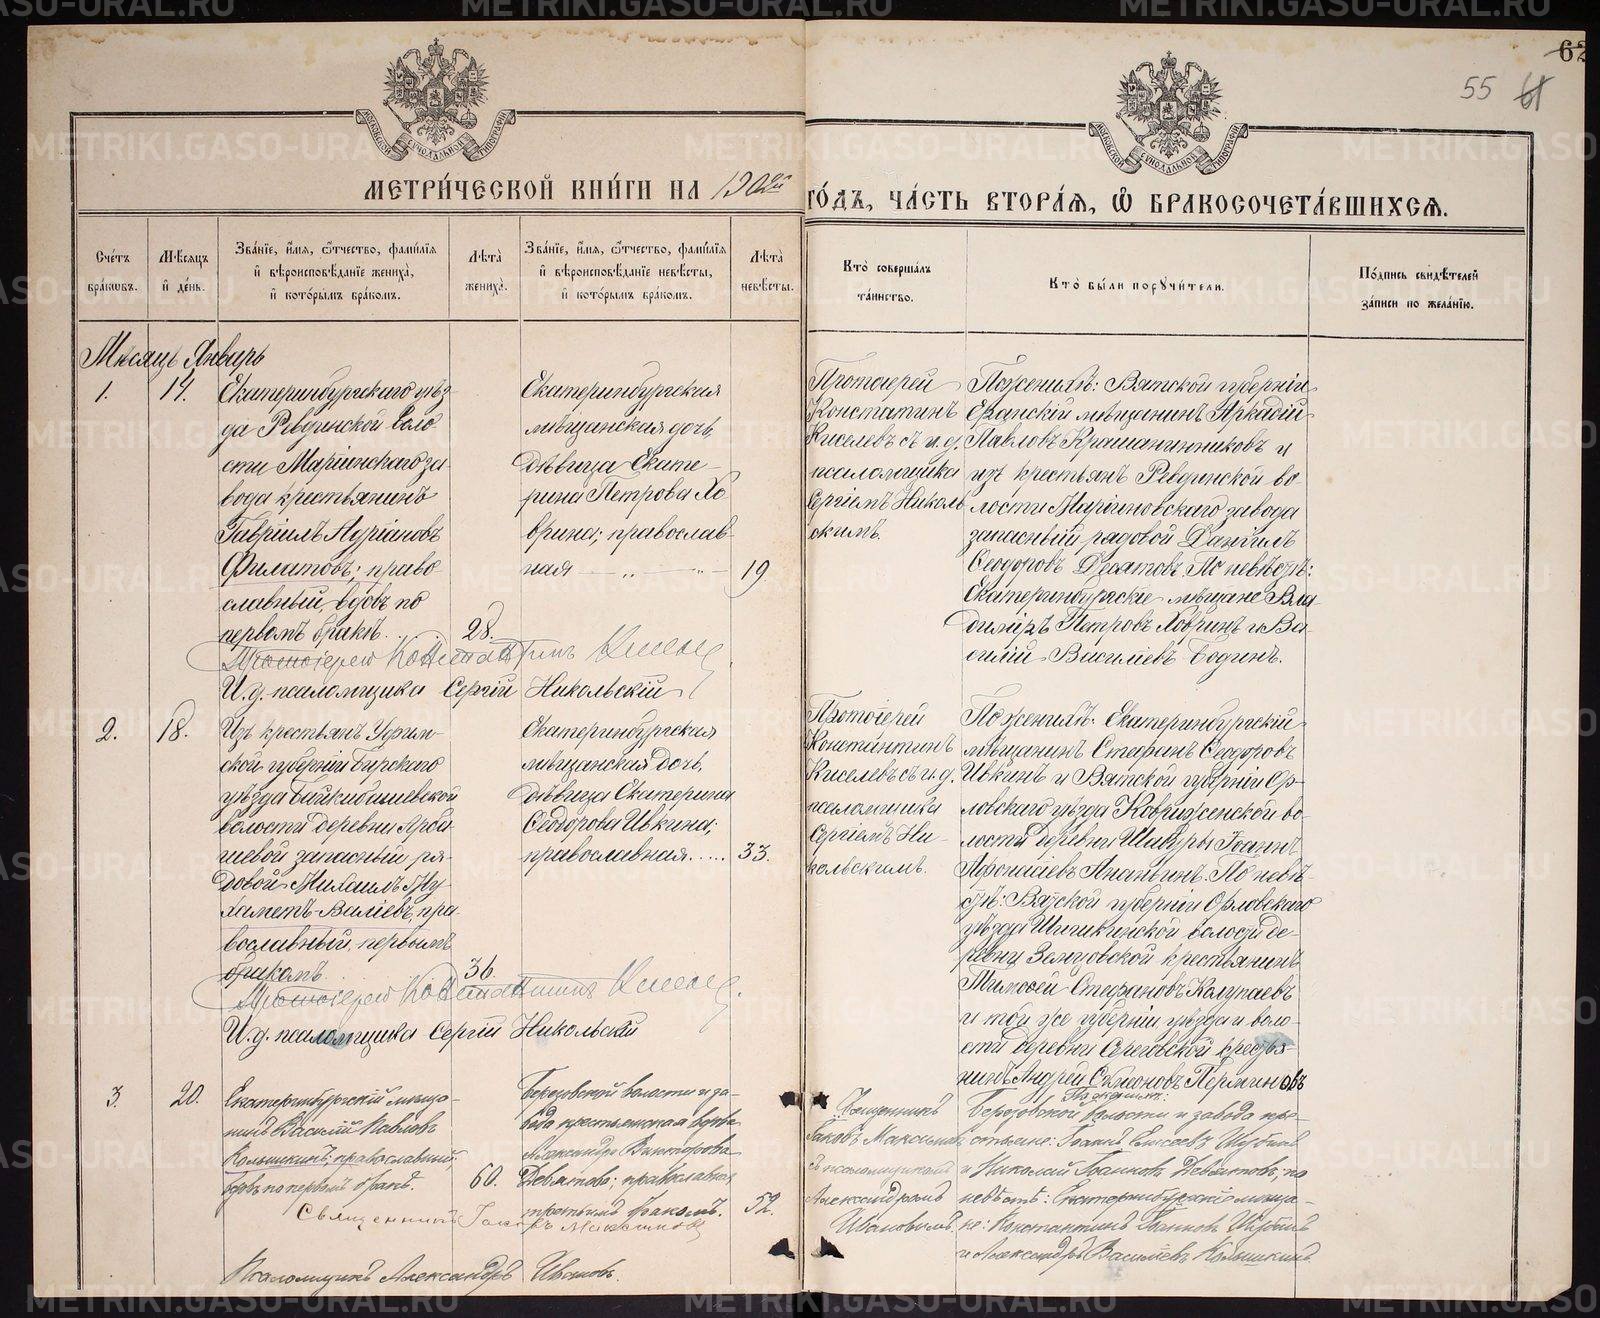 62
55 61
МЕТРИЧЕСКОЙ КНИГИ НА 1902й
ГОДЪ, ЧАСТЬ ВТОРАЯ, Ѡ БРАКОСОЧЕТАВШИХСЯ.
Счетъ браковъ.
Мѣсяцъ и день.
Званіе, имя, отчество, фамилія
и вѣроисповѣданіе жениха,
и которымъ бракомъ.
Лѣта жениха.
Званіе, имя, отчество, фамилія
и вѣроисповѣданіе невѣсты,
и которымъ бракомъ.
Лѣта невѣсты.
Кто совершалъ
таинство.
Кто были поручители.
Подпись свидѣтелей
записи по желанію.
Мѣсяцъ Январь
1.
14.
Екатеринбургскаго уѣз-
да Ревдинской воло
сти Маріинскаго за-
вода крестьянинъ
Гавріилъ Адріановъ
Филатовъ; право-
славный, вдовъ по
первомъ бракѣ.
28.
Екатеринбургская
мѣщанская дочь,
дѣвица Екате-
рина Петрова Хо
врина; православ-
ная
19
Протоіерей
Константинъ
Киселевъ съ и.д.
псаломщика
Сергіемъ Николь
скимъ.
По женихѣ: Вятской губерніи
Яранскій мѣщанинъ Аркадій
Павловъ Крашанинниковъ и
изъ крестьянъ Ревдинской во
лости Маріинскаго завода
запасный рядовой Даніилъ
Ѳеодоровъ Десятовъ. По невѣстѣ:
Екатеринбургскіе мѣщане Вла-
диміръ Петровъ Ховринъ и Ва-
силій Васильевъ Бодинъ.
Протоіерей Константинъ Киселевъ
И.д. псаломщика Сергій Никольскій
2.
18.
Изъ крестьянъ Уфим-
ской губерніи Бирскаго
уѣзда Байкибашевской
волости деревни
запасный ря-
довой Михаилъ Му-
хаметъ-Валіевъ, пра-
вославный, первымъ
бракомъ.
36.
Екатеринбургская
мѣщанская дочь,
дѣвица Екатерина
Ѳеодорова Ивкина;
православная.....
33.
Протоіерей
Константинъ
Киселевъ съ и.д.
псаломщика
Сергіемъ Ни-
кольскимъ.
По женихѣ: Екатеринбургскій
мѣщанинъ Стефанъ Ѳеодоровъ
Ивкинъ и Вятской губерніи Ор-
ловскаго уѣзда Коврижской во-
лости деревни Іоаннъ
Аѳонасіевъ Ананьинъ. По невѣ-
стѣ: Вятской губерніи Орловскаго
уѣзда волости де-
ревни Земцовской крестьянинъ
Тимоѳей Стефановъ Колупаевъ
и той же губерніи уѣзда и воло-
сти деревни крестья-
нинъ Андрей Пермяковъ
Протоіерей Константинъ Киселевъ
И.д. псаломщика Сергій Никольскій
3.
20.
Екатеринбургскій мѣща-
нинъ Василій Павловъ
Колышкинъ; православный;
вдовъ по первомъ бракѣ.
60.
Березовской волости и за-
вода крестьянская вдова
Александра Викторова
Девятова; православная
третьимъ бракомъ.
52.
Священникъ
Іаковъ Максимовъ
съ псаломщикомъ
Александромъ
Ивановымъ.
По женихѣ:
Березовской волости и завода кре-
стьяне: Іоаннъ Елисеевъ
и Николай Іоанновъ Девятовъ; по
невѣстѣ: Екатеринбургскіе мѣща-
не: Константинъ Іоанновъ
и Александръ Васильевъ Колышкинъ
Священникъ Іаковъ Максимовъ
Псаломщикъ Александръ Ивановъ.
METRIKI.GASO-URAL.RU